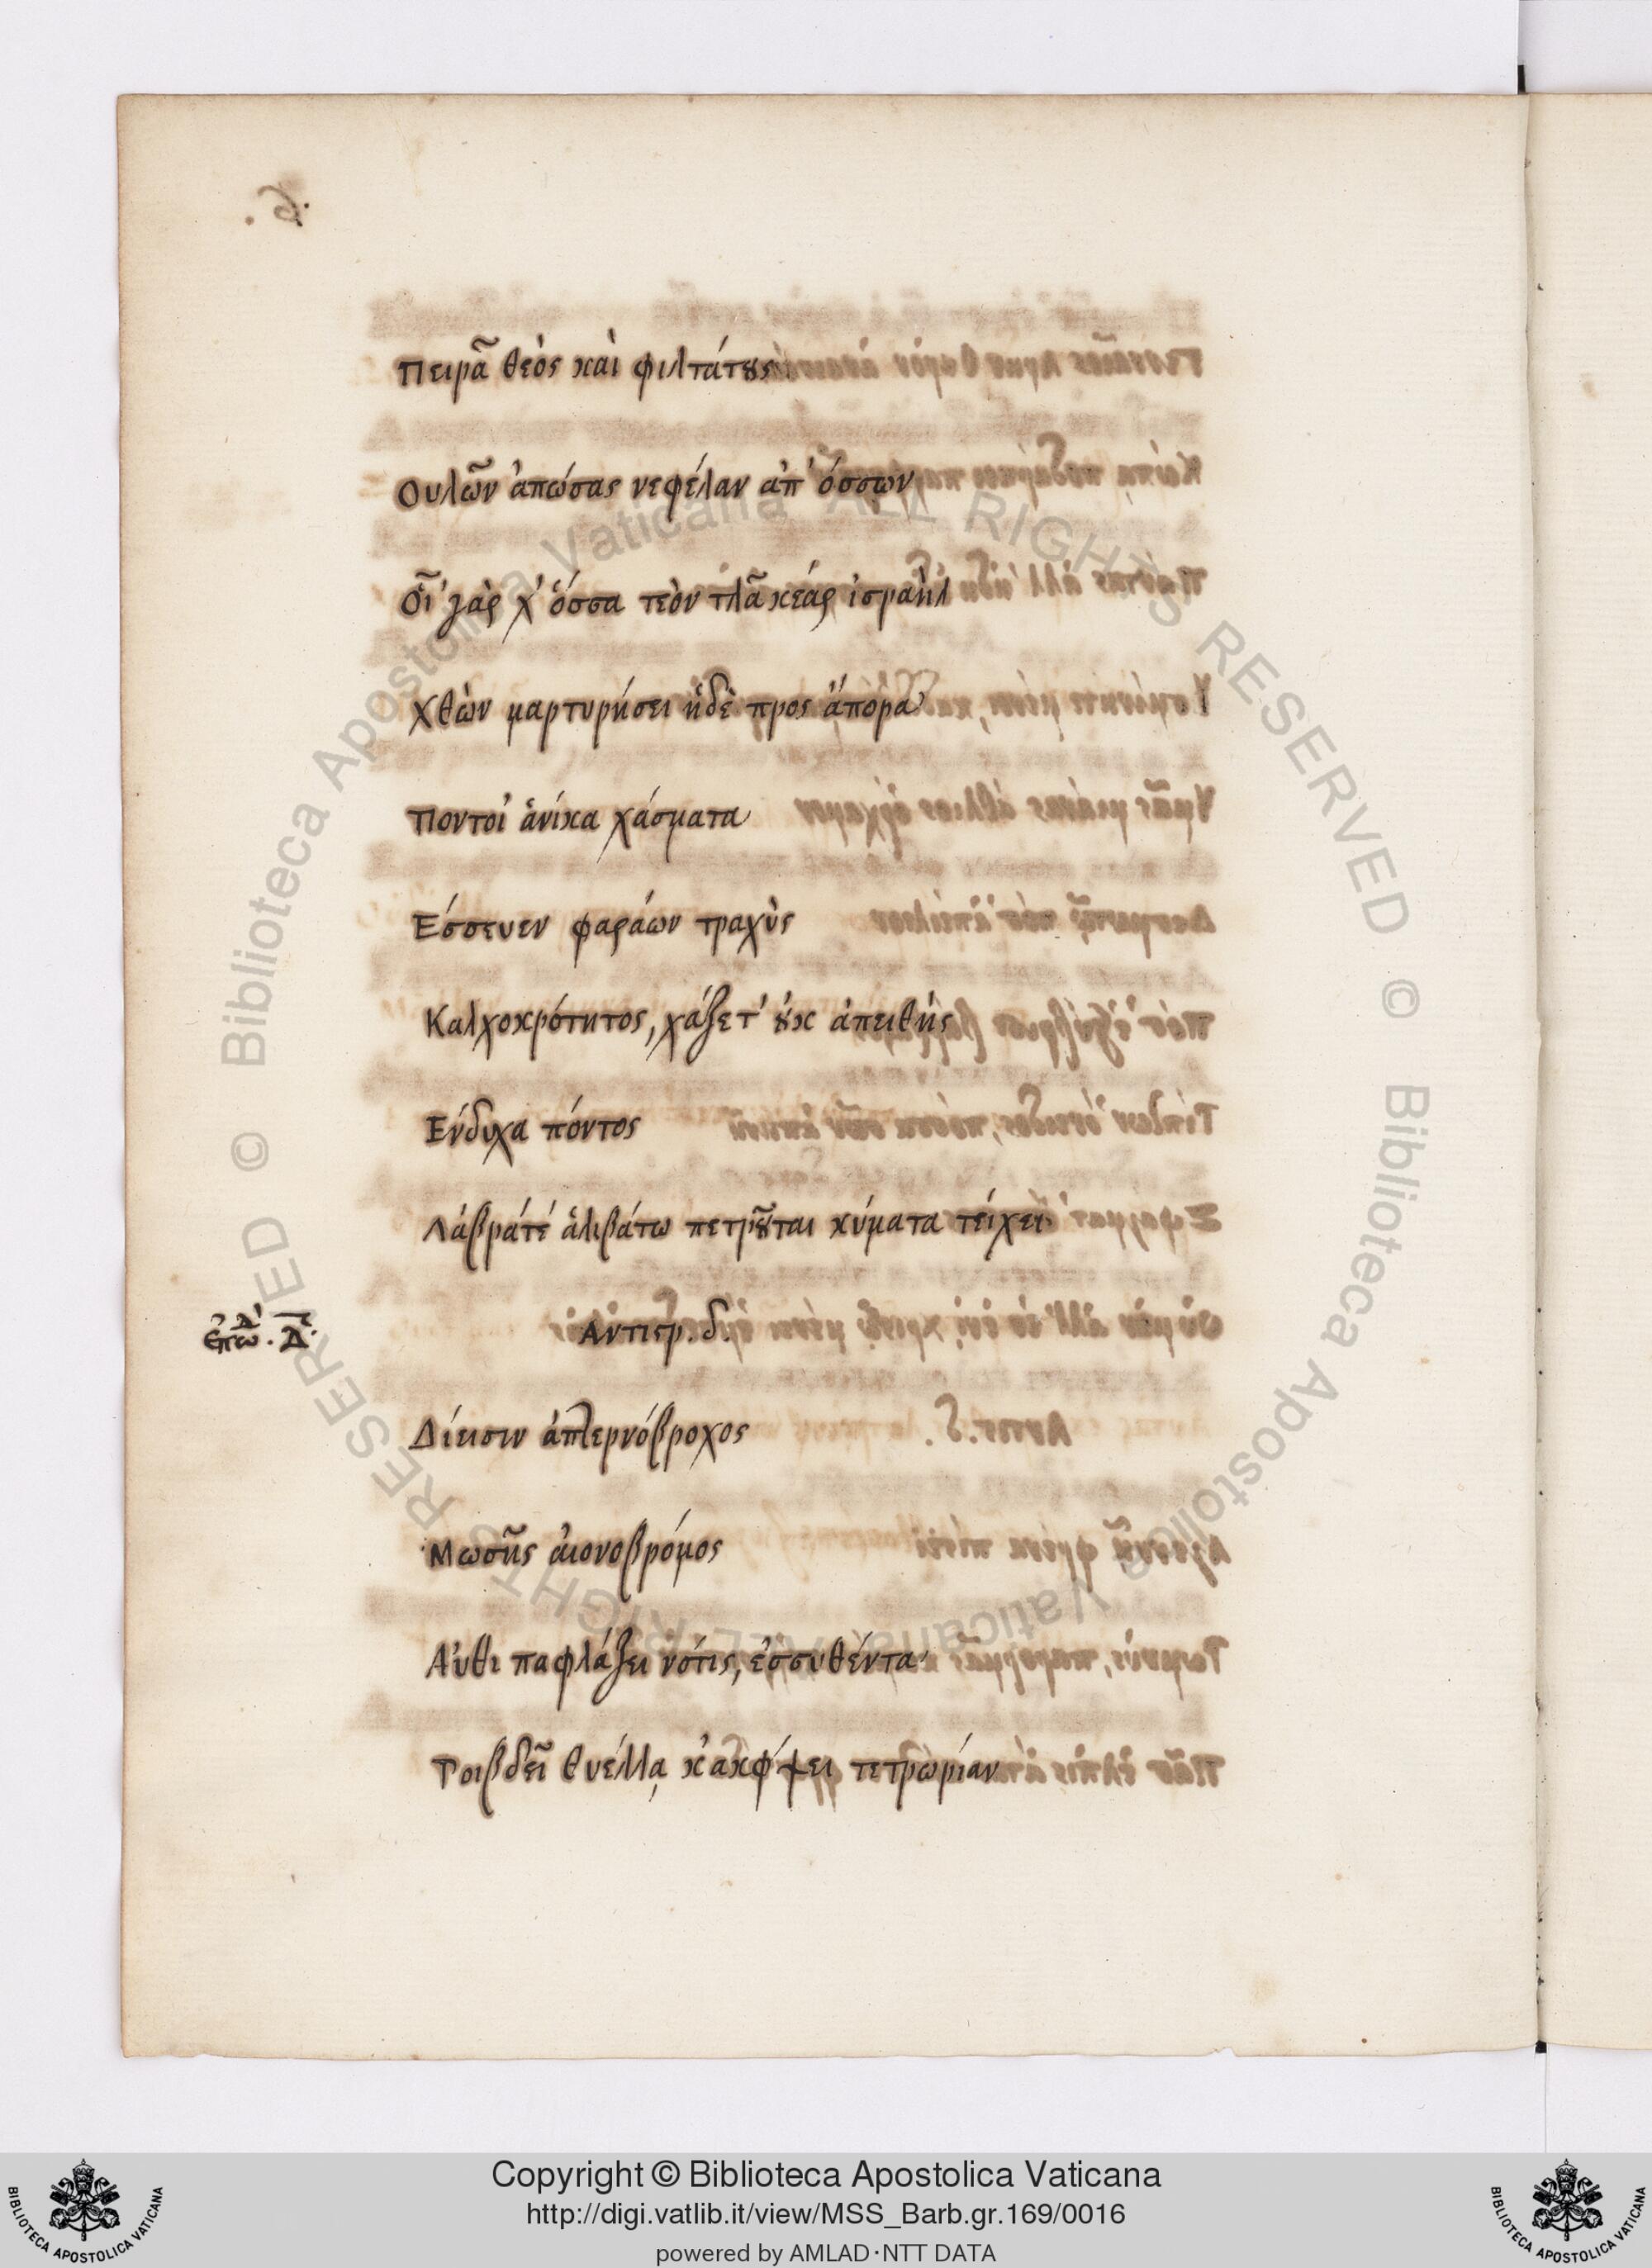 Πειρᾶ θεὸς καὶ φιλτάτους
Ουλῶν ἀπώσας νεφέλαν ἀπ' ὄσσων
Οἷ γὰρ χ' ὅσσα τεὸν τλᾶ κέαρ ἰσραὴλ
Χθὼν μαρτυρήσει ἠδὲ προς ἄπορα
Ποντοῖ ἁνίκα χάσματα
Εσσευεν φαράων τραχὺς
Καλχοκρότητος, χάζετ' οὐκ ἀπειθὴς
Ενδιχα πόντος
Λάβρατέ ἁλιβάτω πετροῦται κύματα τείχει
Αντιστρ. δ.
Επῳδ. Δ.
Δίεισιν ἀπτερνόβροχος
Μωσῆς ἀιονοβρόμος
Αὖθι παφλάζει νότις, ἐσσυθέντα
Ροιβδεῖ θυέλλᾳ τετρωρίαν
Copyright © Biblioteca Apostolica Vaticana
http://digi.vatlib.it/view/MSS_Barb.gr.169/0016
powered by AMLAD·NTT DATA
© Biblioteca Apostolica Vaticana ALL RIGHTS RESERVED
© Biblioteca Apostolica Vaticana ALL RIGHTS RESERVED
BIBLIOTECA APOSTOLICA VATICANA
BIBLIOTECA APOSTOLICA VATICANA